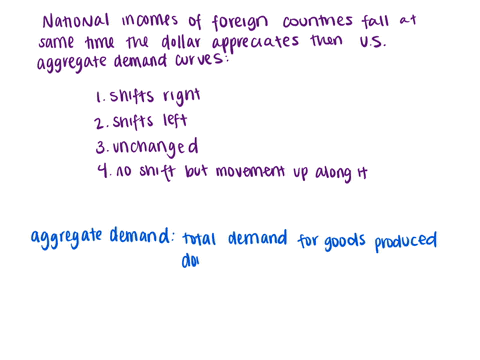 National incomes of foreign countries fall at
same time the dollar appreciates then U.S.
aggregate demand curves:
1. shifts right
2. shifts left
3. unchanged
4. no shift but movement up along it
aggregate demand: total demand for goods produced